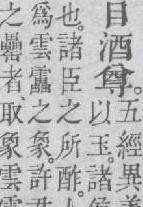 目酒尊。五經異義
以玉。諸侯
也。諸臣之所酢。
爲雲靁之象。許
之罍者、取象雲